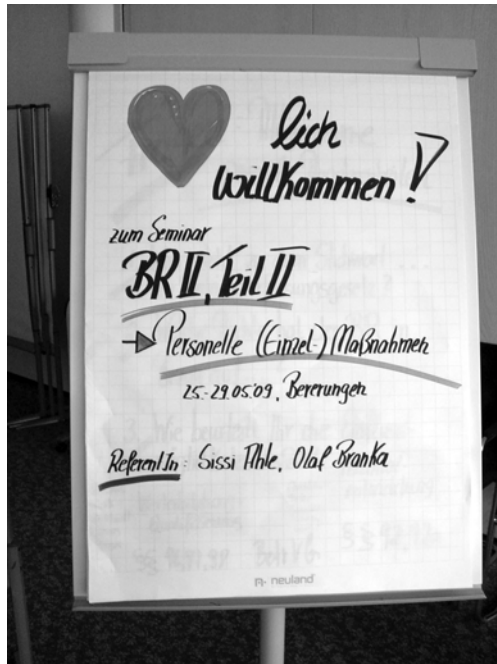 lich
willkommen!
zum Seminar
BR II, Teil II
Personelle (Einzel-) Maßnahmen
25.-29.05.09, Beverungen
ReferentIn: Sissi Ahle, Olaf Branka
neuland